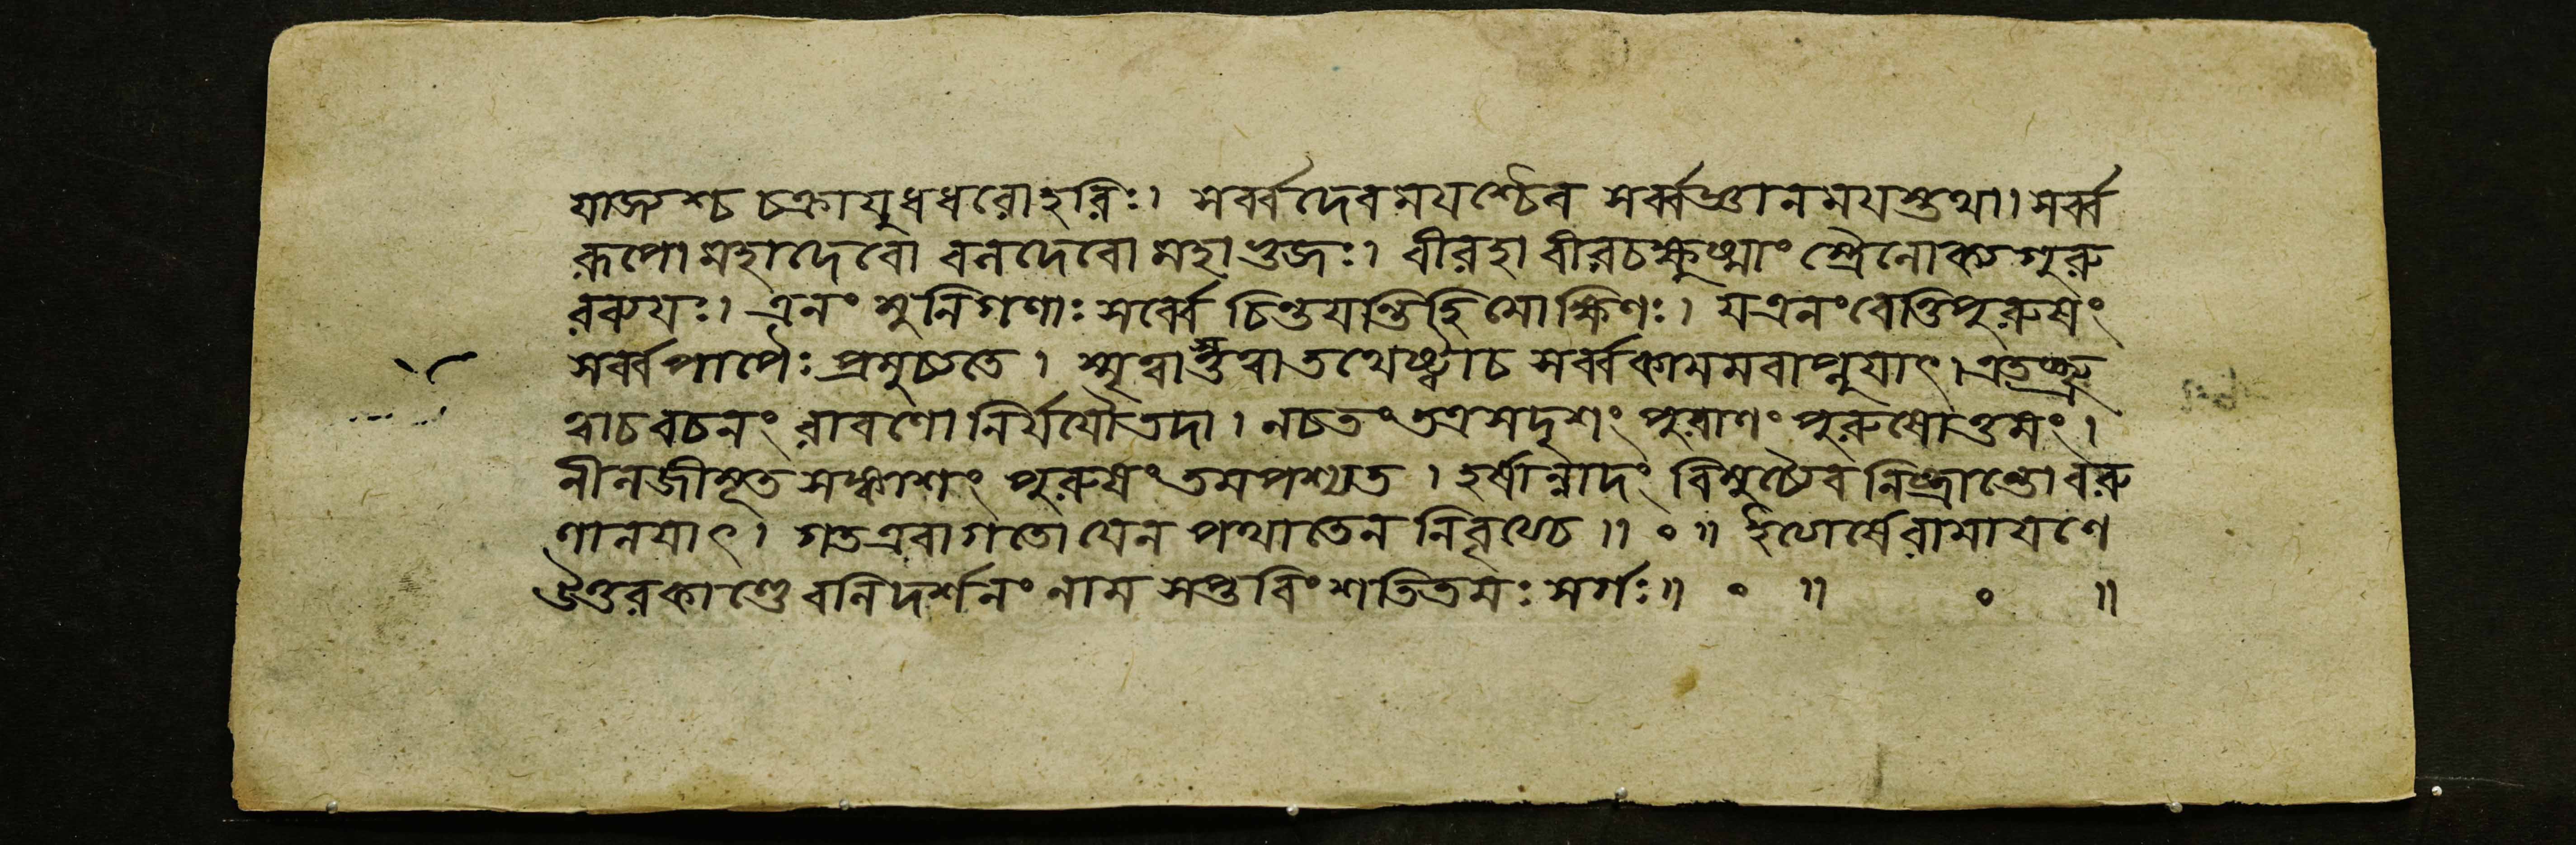 যাঙ্গশ্চ চক্রাযুধধরোহরিঃ। সর্ব্বদেবময়শ্চৈব সর্ব্বজ্ঞানময়স্তথা। সর্ব্ব
রূপো মহাদেবো বলদেবো মহাভুজঃ। বীরহা বীরচক্ষুষ্মাং স্ত্রৈলোক্যগুরু
রব্যয়ঃ। এনং মুনিগণাঃ সর্ব্বে চিন্তয়ন্তিহি মোক্ষিণঃ। য এনং বেত্তি পুরুষং
সর্ব্বপাপৈঃ প্রমুচ্যতে। স্মৃত্বা স্তুত্বা তথেষ্ট্বাচ সর্ব্বকামমবাপ্নুয়াৎ। এতচ্ছ্রু
ত্বাচ বচনং রাবণো নির্যযৌতদা। নচতং তত্র সদৃশং পুরাণং পুরুষোত্তমং।
নীলজীমূত সঙ্কাশং পুরুষং তমপশ্যত। হর্ষান্নাদং বিমুচ্যৈব নিষ্ক্রান্তো বরু
ণালয়াৎ। গত এবাগতো যেন পথাতেন নিবৃত্যচ ॥ ০ ॥ ইত্যার্ষে রামায়ণে
উত্তরকাণ্ডে বলিদর্শনং নাম সপ্তবিংশতিতমঃ সর্গঃ ॥ ০ ॥ ০ ॥